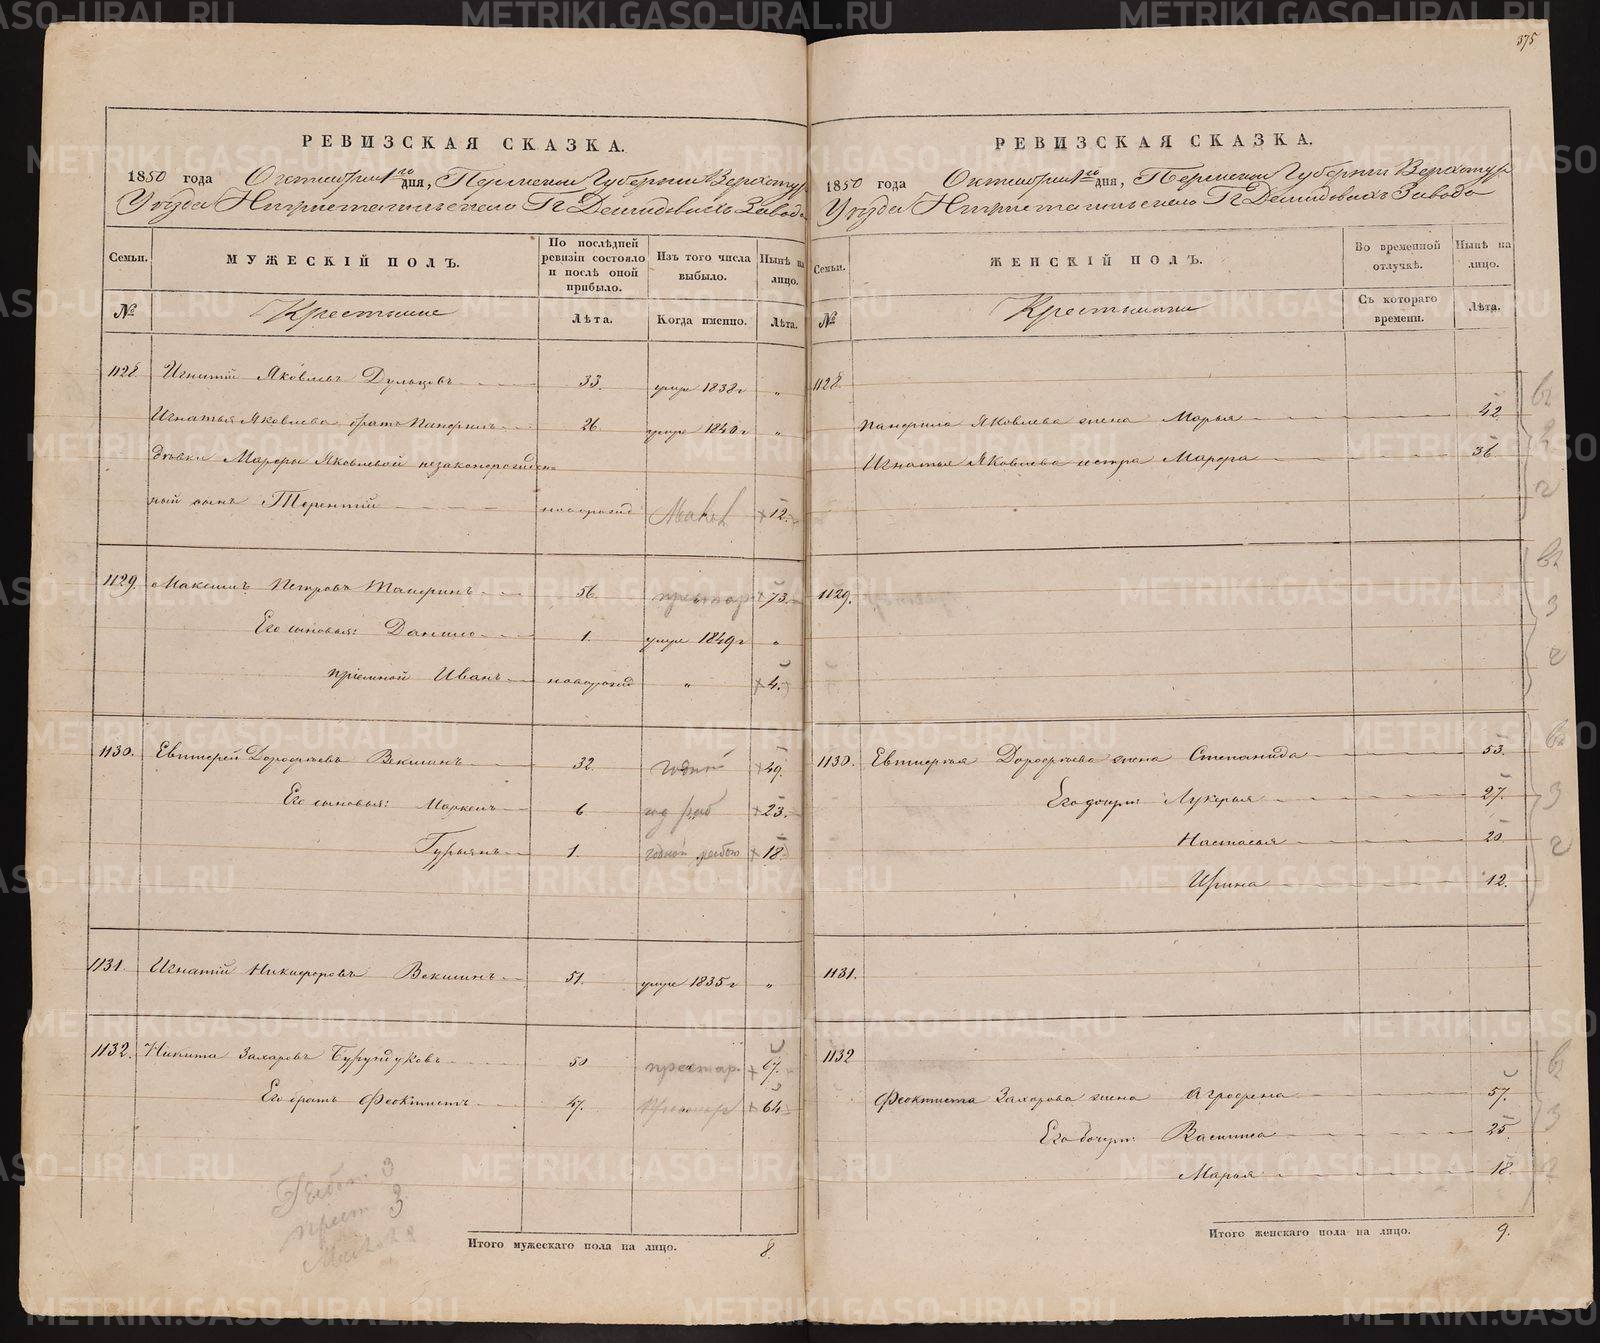 METRIKI.GASO-URAL.RU
375
РЕВИЗСКАЯ СКАЗКА.
1850 года Октября 1го дня, Пермской Губернии Верхотур
Уезда Нижнетагильскаго Гг Демидовыхъ Завода
Семьи.
МУЖЕСКІЙ ПОЛЪ.
По послѣдней ревизіи состояло и послѣ оной прибыло.
Изъ того числа выбыло.
Нынѣ на лицо.
№
Крестьяне
Лѣта.
Когда именно.
Лѣта.
1128. Игнатій Яковлевъ 33. умре 1838 г „
Игнатья Яковлева братъ Панфилъ 26 умре 1840 г „
Дѣвки Марфы Яковлевой незаконорожден-
ный сынъ Терентій новорожд 12.
1129. Максимъ Петровъ 56 престар 73.
Его сыновья: Данило 1. умре 1849 г „
пріемной Иванъ новорожд „ 4.
1130. Евтифей Дорофеевъ Векшинъ 32. годной 49.
Его сыновья: Маркелъ 6 год раб 23.
Гурьянъ 1. годной 18.
1131. Игнатій Никифоровъ Векшинъ 51. умре 1835 г „
1132. Никита Захаровъ Бурундуковъ 50 престар. 67.
Его братъ Феоктистъ 47. 64
3
прест 3
Итого мужескаго пола на лицо. 8.
РЕВИЗСКАЯ СКАЗКА.
1850 года Октября 1го дня, Пермской Губернии Верхотур
Уезда Нижнетагильскаго Гг Демидовыхъ Завода
Семьи.
ЖЕНСКІЙ ПОЛЪ.
Во временной отлучкѣ.
Нынѣ на лицо.
№
Крестьянки
Съ котораго времени.
Лѣта.
1128.
Панфила Яковлева жена Марья 42
Игнатья Яковлева сестра Марфа 36
1129.
1130. Евтифья Дорофеева жена Степанида 53.
Его дочери: Лукерья 27.
Настасья 20.
Ирина 12.
1131.
1132
Феоктиста Захарова жена Агрофена 57.
Его дочери: Васиниса 25.
Марья 18.
Итого женскаго пола на лицо. 9.